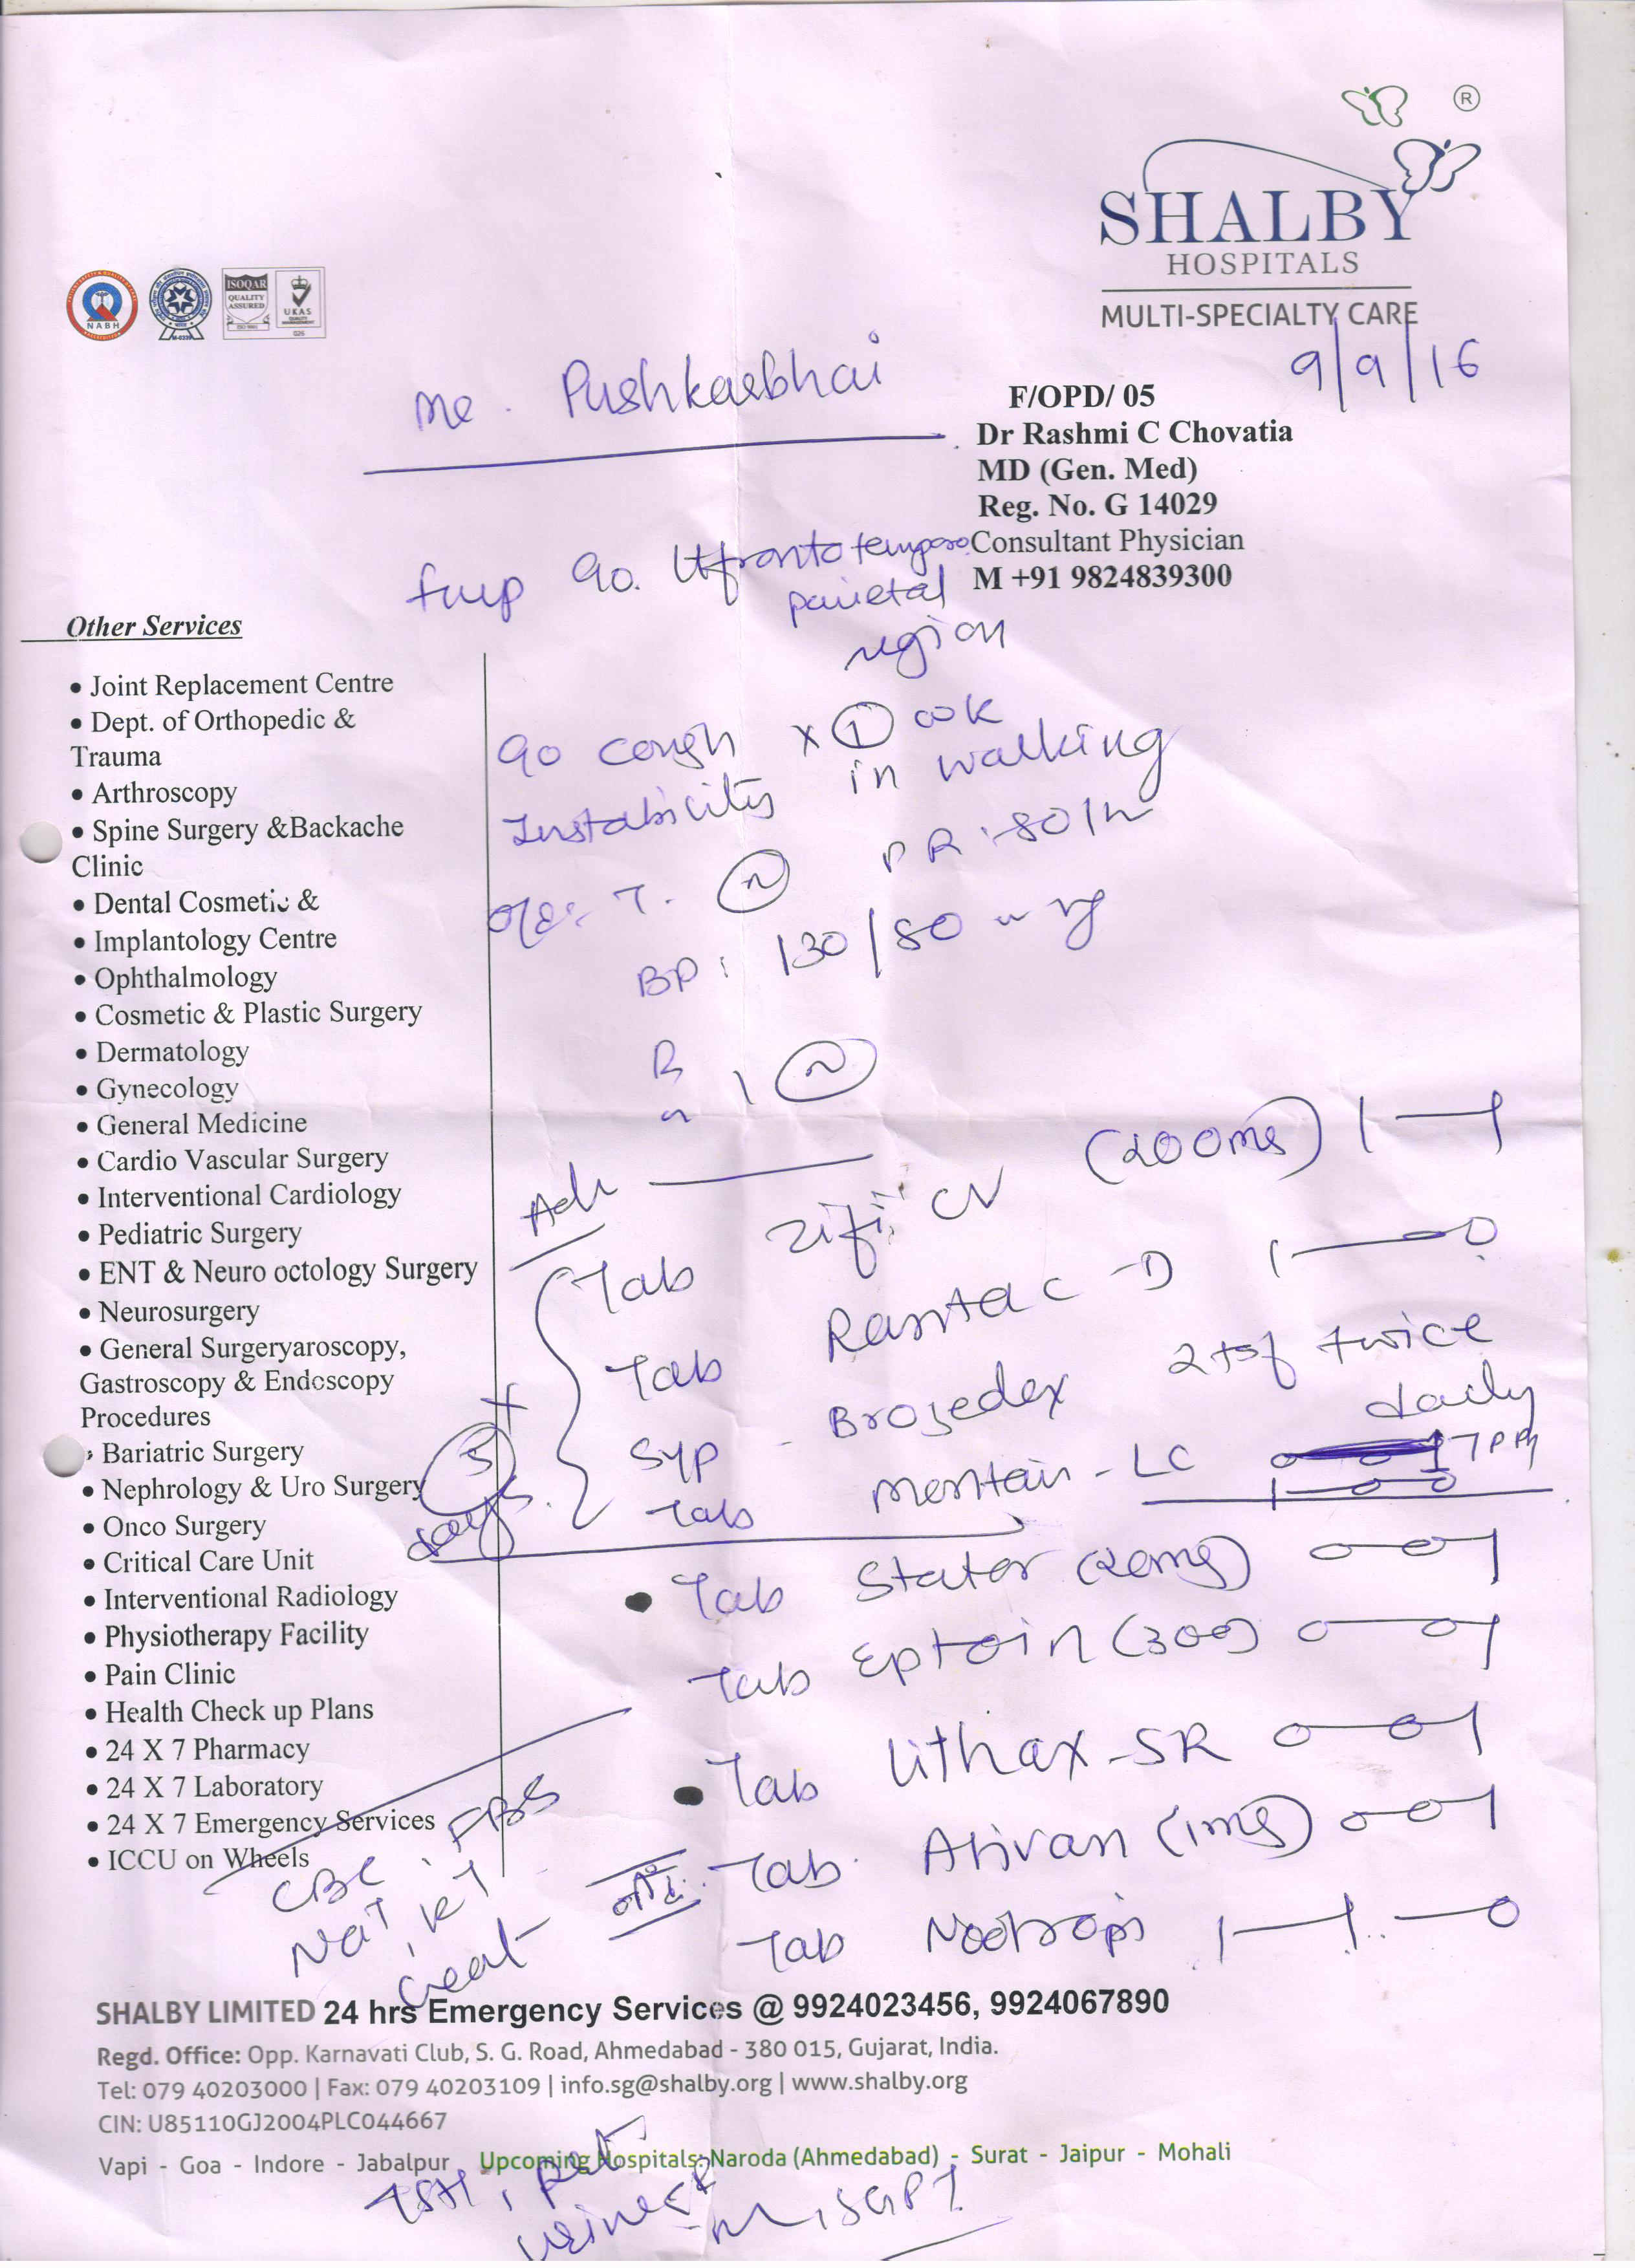 ®
SHALBY
HOSPITALS
MULTI-SPECIALTY CARE
NABH
M-0339
ISOQAR
QUALITY
ASSURED
ISO 9001
UKAS
QUALITY
MANAGEMENT
026
9/9/16
Mr. Pushkarbhai
F/OPD/ 05
Dr Rashmi C Chovatia
MD (Gen. Med)
Reg. No. G 14029
Consultant Physician
M +91 9824839300
Lt fronto temporo
parietal
region
Other Services
• Joint Replacement Centre
• Dept. of Orthopedic &
Trauma
• Arthroscopy
• Spine Surgery &Backache
Clinic
• Dental Cosmetic &
• Implantology Centre
• Ophthalmology
• Cosmetic & Plastic Surgery
• Dermatology
• Gynecology
• General Medicine
• Cardio Vascular Surgery
• Interventional Cardiology
• Pediatric Surgery
• ENT & Neuro octology Surgery
• Neurosurgery
• General Surgeryaroscopy,
Gastroscopy & Endoscopy
Procedures
• Bariatric Surgery
• Nephrology & Uro Surgery
• Onco Surgery
• Critical Care Unit
• Interventional Radiology
• Physiotherapy Facility
• Pain Clinic
• Health Check up Plans
• 24 X 7 Pharmacy
• 24 X 7 Laboratory
• 24 X 7 Emergency Services
• ICCU on Wheels
c/o cough x 1 wk
Instability in walking
O/E: T. N PR: 80/m
BP: 130/80 mmHg
N
Adv
Tab Zifi CV (200mg) 1 — 1
Tab Rantac-D 1 — 0
Syp Brozedex 2 tsf twice
daily
Tab Montair-LC 7 PM
1-0-0
x 5 days
• Tab Stator (20mg) 0-0-1
Tab Eptoin (300) 0-0-1
• Tab Lithax-SR 0-0-1
Tab. Ativan (1mg) 0-0-1
Tab Nootropil 1-1-0
CBC, FBS
Na+, K+
Creat
SHALBY LIMITED 24 hrs Emergency Services @ 9924023456, 9924067890
Regd. Office: Opp. Karnavati Club, S. G. Road, Ahmedabad - 380 015, Gujarat, India.
Tel: 079 40203000 | Fax: 079 40203109 | info.sg@shalby.org | www.shalby.org
CIN: U85110GJ2004PLC044667
Vapi - Goa - Indore - Jabalpur Upcoming Hospitals: Naroda (Ahmedabad) - Surat - Jaipur - Mohali
TSH,
Urine R
SGPT